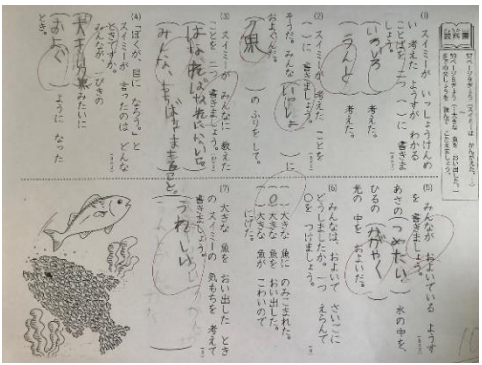 教科書
(1) スイミーが いっしょうけんめ
い 考えた ようすが わかる
ことばを 二つ ( )に 書きま
しょう。
いろいろ 考えた。
うんと 考えた。
(2) スイミーが 考えた ことを
( )に 書きましょう。
そうだ。みんな いっしょ に
およぐんだ。
魚 の ふりを して。
(3) スイミーが みんなに 教えた
ことを 二つ 書きましょう。
みんな、もちばをまもること。
(4) 「ぼくが、目に なろう。」と
スイミーが 言ったのは どんな
ときですか。
みんなが 一ぴきの
大きな魚みたいに
およぐ ように なった
とき。
(5) みんなが およいでいる ようす
を 書きましょう。
あさの つめたい 水の 中を、
ひるの かがやく
光の 中を およいだ。
(6) みんなは、およいで さいごに
どうしましたか。一つ えらんで
○を つけましょう。
( )大きな 魚に のみこまれた。
(○)大きな 魚を おい出した。
( )大きな 魚が こわいので
にげた。
(7) 大きな 魚を おい出した とき
の スイミーの 気もちを 考えて
書きましょう。
うれしい。